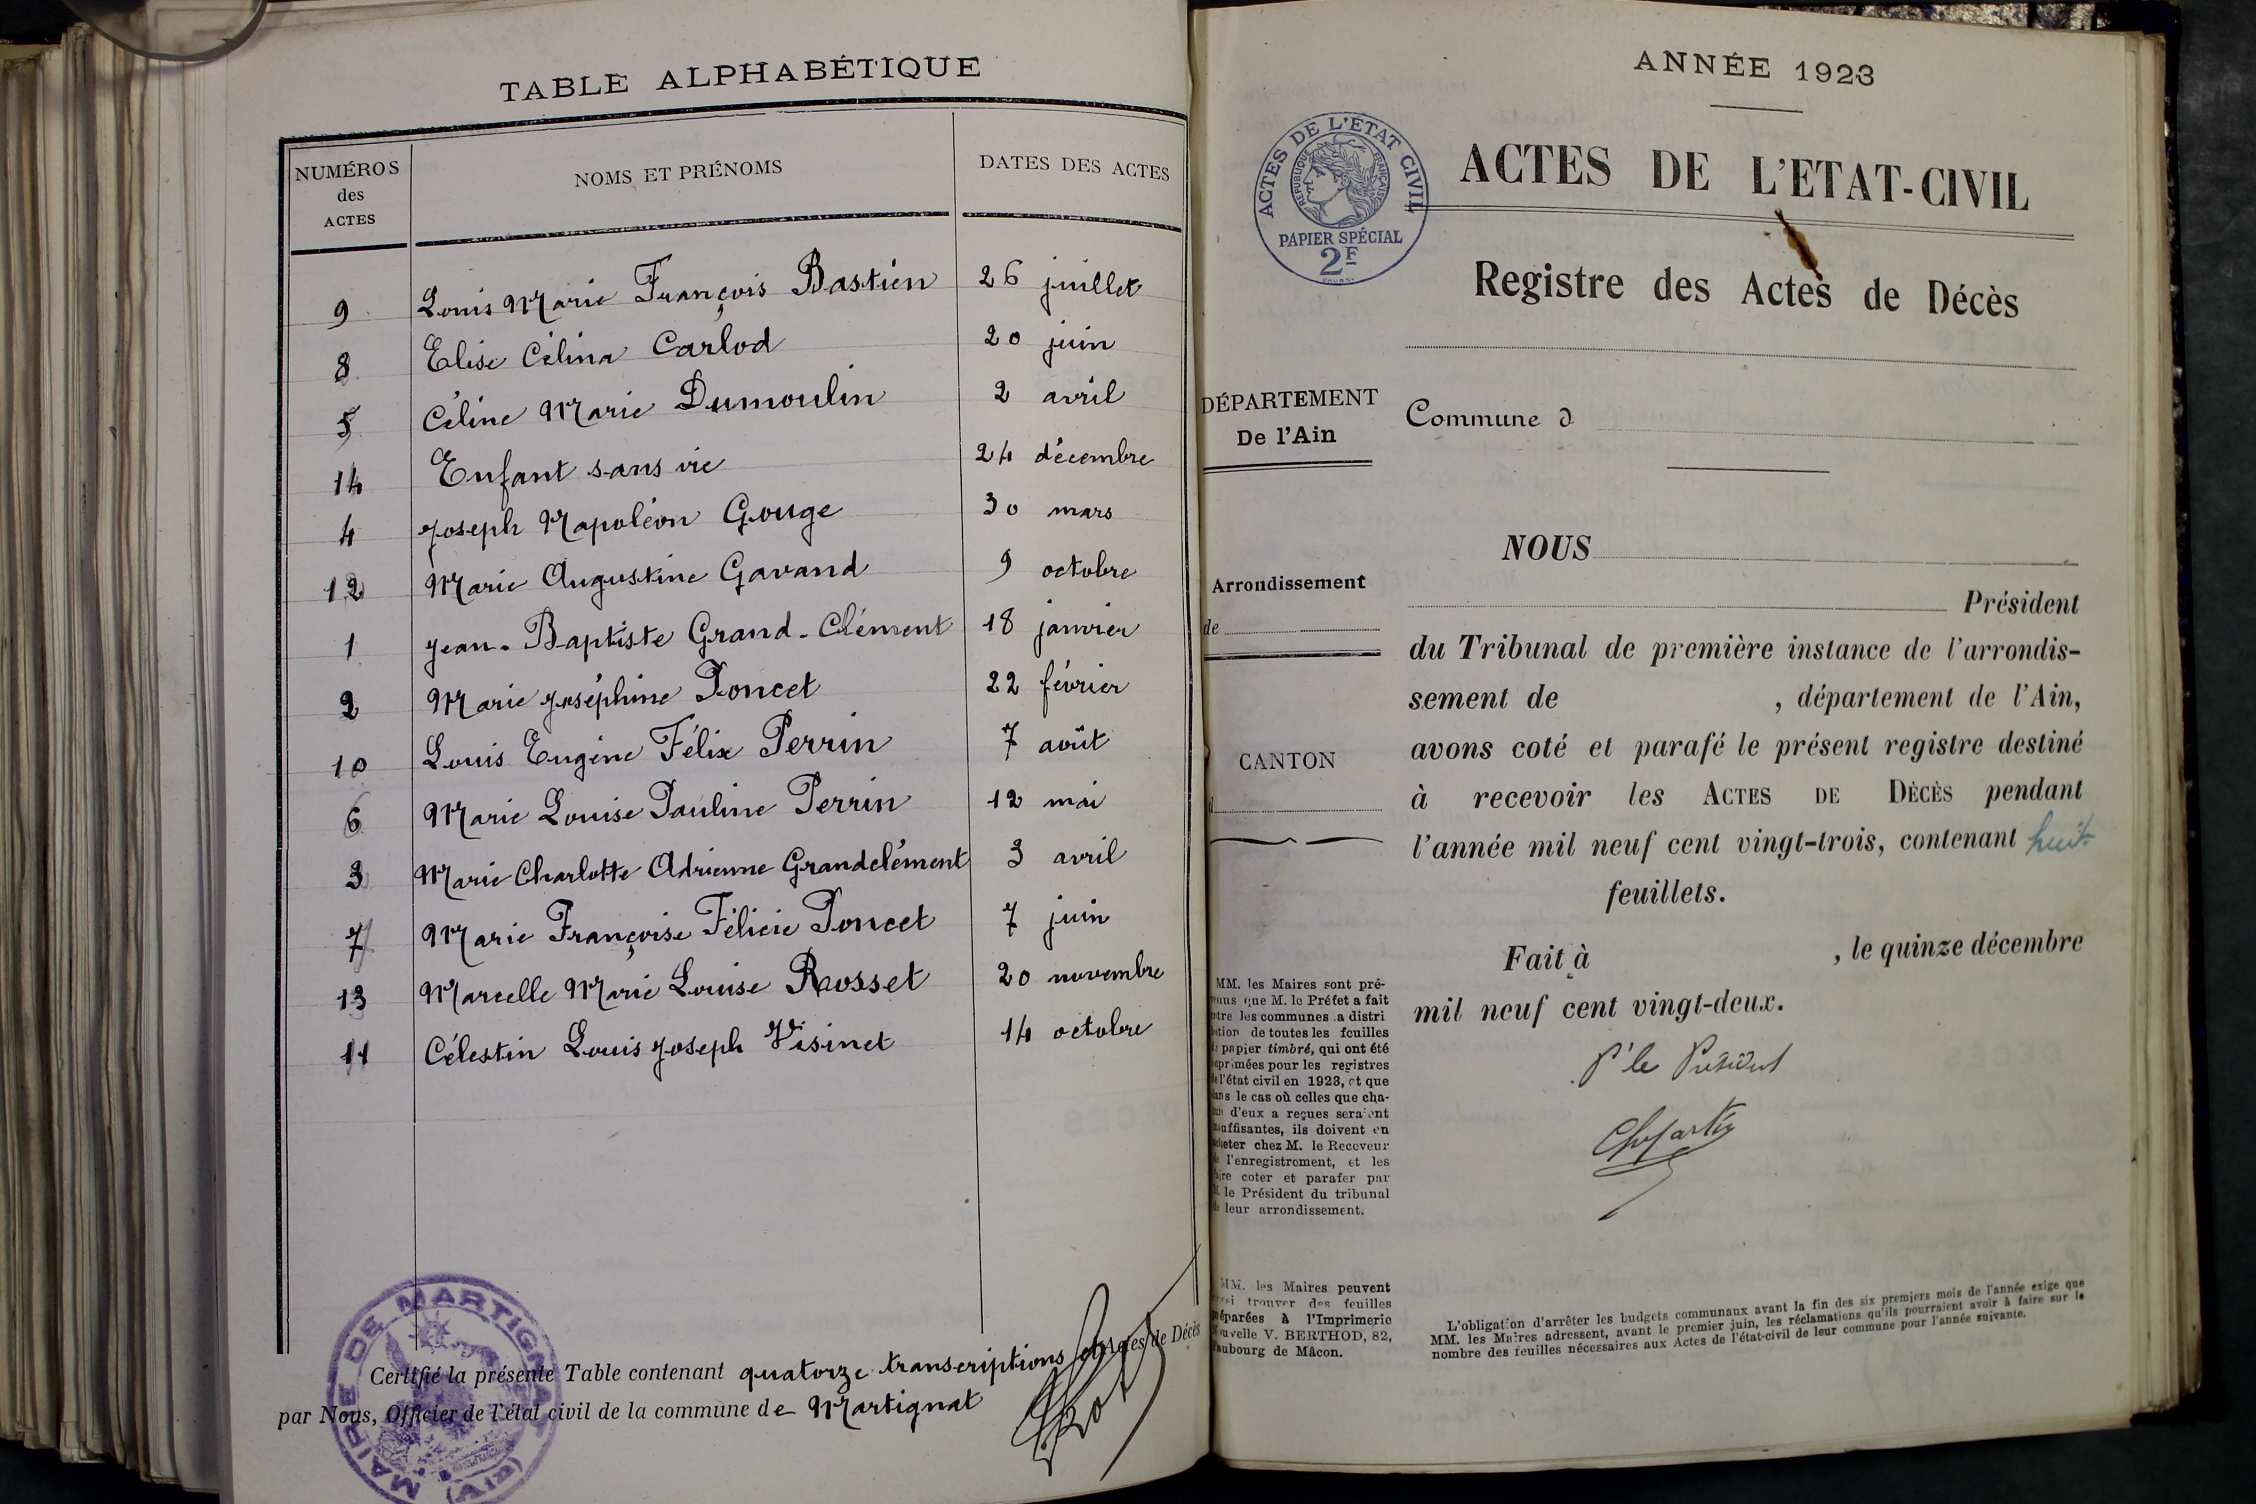 TABLE ALPHABÉTIQUE
NUMÉROS
des
ACTES
NOMS ET PRÉNOMS
DATES DES ACTES
9 Louis Marie François Bastien 26 juillet
8 Elise Célina Carlod 20 juin
5 Céline Marie Dumoulin 2 avril
14 Enfant sans vie 24 décembre
4 Joseph Napoléon Gouge 30 mars
12 Marie Augustine Gavand 9 octobre
1 Jean-Baptiste Grand-Clément 18 janvier
2 Marie Joséphine Poncet 22 février
10 Louis Eugène Félix Perrin 7 août
6 Marie Louise Pauline Perrin 12 mai
3 Marie Charlotte Adrienne Grandclément 3 avril
7 Marie Françoise Félicie Poncet 7 juin
13 Marcelle Marie Louise Rosset 20 novembre
11 Célestin Louis Joseph Visinet 14 octobre
Certifié la présente Table contenant quatorze transcriptions et Actes de Décès
par Nous, Officier de l'état civil de la commune de Martignat
MAIRIE DE MARTIGNAT (AIN)
ANNÉE 1923
ACTES DE L'ÉTAT CIVIL
RÉPUBLIQUE FRANÇAISE
PAPIER SPÉCIAL
2F
ACTES DE L'ETAT-CIVIL
Registre des Actes de Décès
DÉPARTEMENT
De l'Ain
Commune d
NOUS
Arrondissement
de
Président
du Tribunal de première instance de l'arrondis-
sement de , département de l'Ain,
avons coté et parafé le présent registre destiné
à recevoir les ACTES DE DÉCÈS pendant
l'année mil neuf cent vingt-trois, contenant huit
feuillets.
CANTON
d
Fait à , le quinze décembre
mil neuf cent vingt-deux.
Pr le Président
MM. les Maires sont pré-
que M. le Préfet a fait
les communes la distri
de toutes les feuilles
papier timbré, qui ont été
pour les registres
de l'état civil en 1923, et que
dans le cas où celles que cha-
d'eux a reçues seraient
ils doivent en
chez M. le Receveur
de l'enregistrement, et les
faire coter et parafer par
M. le Président du tribunal
de leur arrondissement.
MM. les Maires peuvent
trouver des feuilles
préparées à l'Imprimerie
Nouvelle V. BERTHOD, 82,
faubourg de Mâcon.
L'obligation d'arrêter les budgets communaux avant la fin des six premiers mois de l'année exige que
MM. les Maires adressent, avant le premier juin, les réclamations qu'ils pourraient avoir à faire sur le
nombre des feuilles nécessaires aux Actes de l'état-civil de leur commune pour l'année suivante.